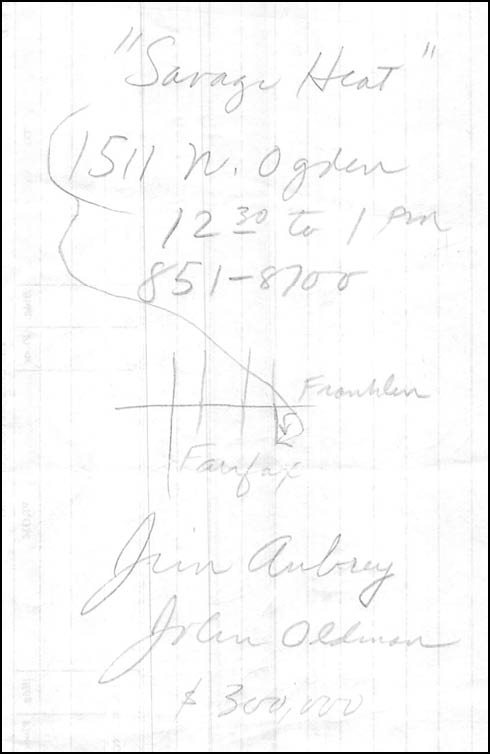 "Savage Heat"
1511 N. Ogden
12 30 to 1 PM
851-8700
Franklin
Fairfax
Jim Aubrey
John Oldman
$ 300,000